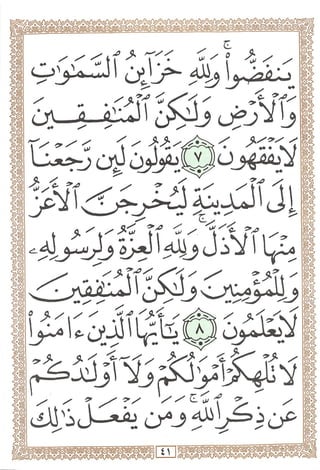 يَنفَضُّوا۟ ۗ وَلِلَّهِ خَزَآئِنُ ٱلسَّمَـٰوَٰتِ
وَٱلْأَرْضِ وَلَـٰكِنَّ ٱلْمُنَـٰفِقِينَ
لَا يَفْقَهُونَ ٧ يَقُولُونَ لَئِن رَّجَعْنَآ
إِلَى ٱلْمَدِينَةِ لَيُخْرِجَنَّ ٱلْأَعَزُّ
مِنْهَا ٱلْأَذَلَّ ۚ وَلِلَّهِ ٱلْعِزَّةُ وَلِرَسُولِهِۦ
وَلِلْمُؤْمِنِينَ وَلَـٰكِنَّ ٱلْمُنَـٰفِقِينَ
لَا يَعْلَمُونَ ٨ يَـٰٓأَيُّهَا ٱلَّذِينَ ءَامَنُوا۟
لَا تُلْهِكُمْ أَمْوَٰلُكُمْ وَلَآ أَوْلَـٰدُكُمْ
عَن ذِكْرِ ٱللَّهِ ۚ وَمَن يَفْعَلْ ذَٰلِكَ
٤١